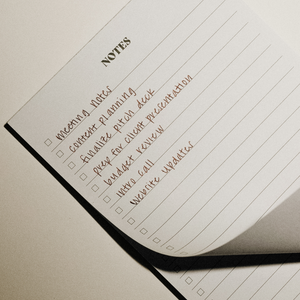 NOTES
meeting notes
content planning
finalize pitch deck
prep for client presentation
budget review
intro call
website updates